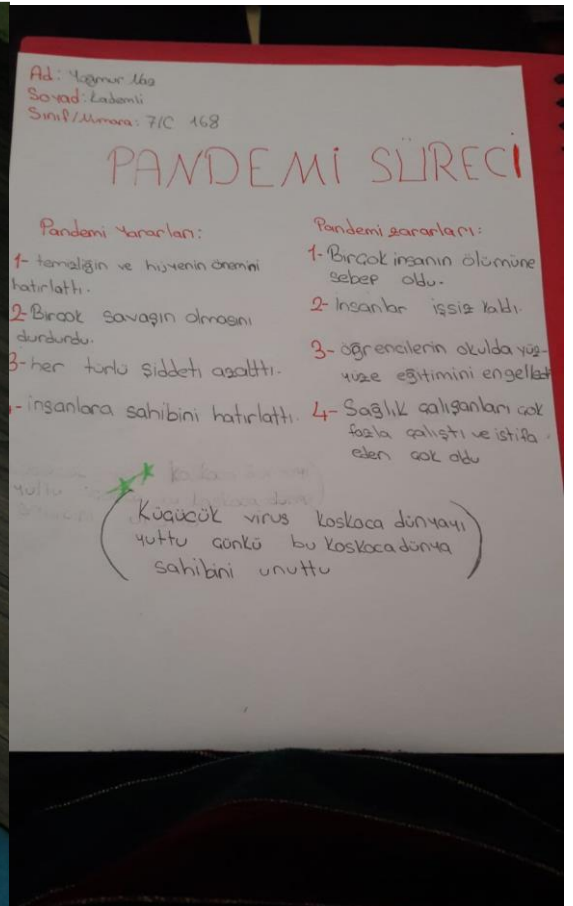 Ad: Yağmur
Soyad: Kademli
Sınıf/Numara: 7/C 168
PANDEMİ SÜRECİ
Pandemi Yararları:
1- temizliğin ve hijyenin önemini
hatırlattı.
2- Birçok savaşın olmasını
durdurdu.
3- her türlü şiddeti azalttı.
- insanlara sahibini hatırlattı.
Pandemi zararları:
1- Birçok insanın ölümüne
sebep oldu.
2- İnsanlar işsiz kaldı.
3- öğrencilerin okulda yüz-
yüze eğitimini engelledi
4- Sağlık çalışanları çok
fazla çalıştı ve istifa
eden çok oldu
(Küçücük virus koskoca dünyayı
yuttu çünkü bu koskoca dünya
sahibini unuttu)